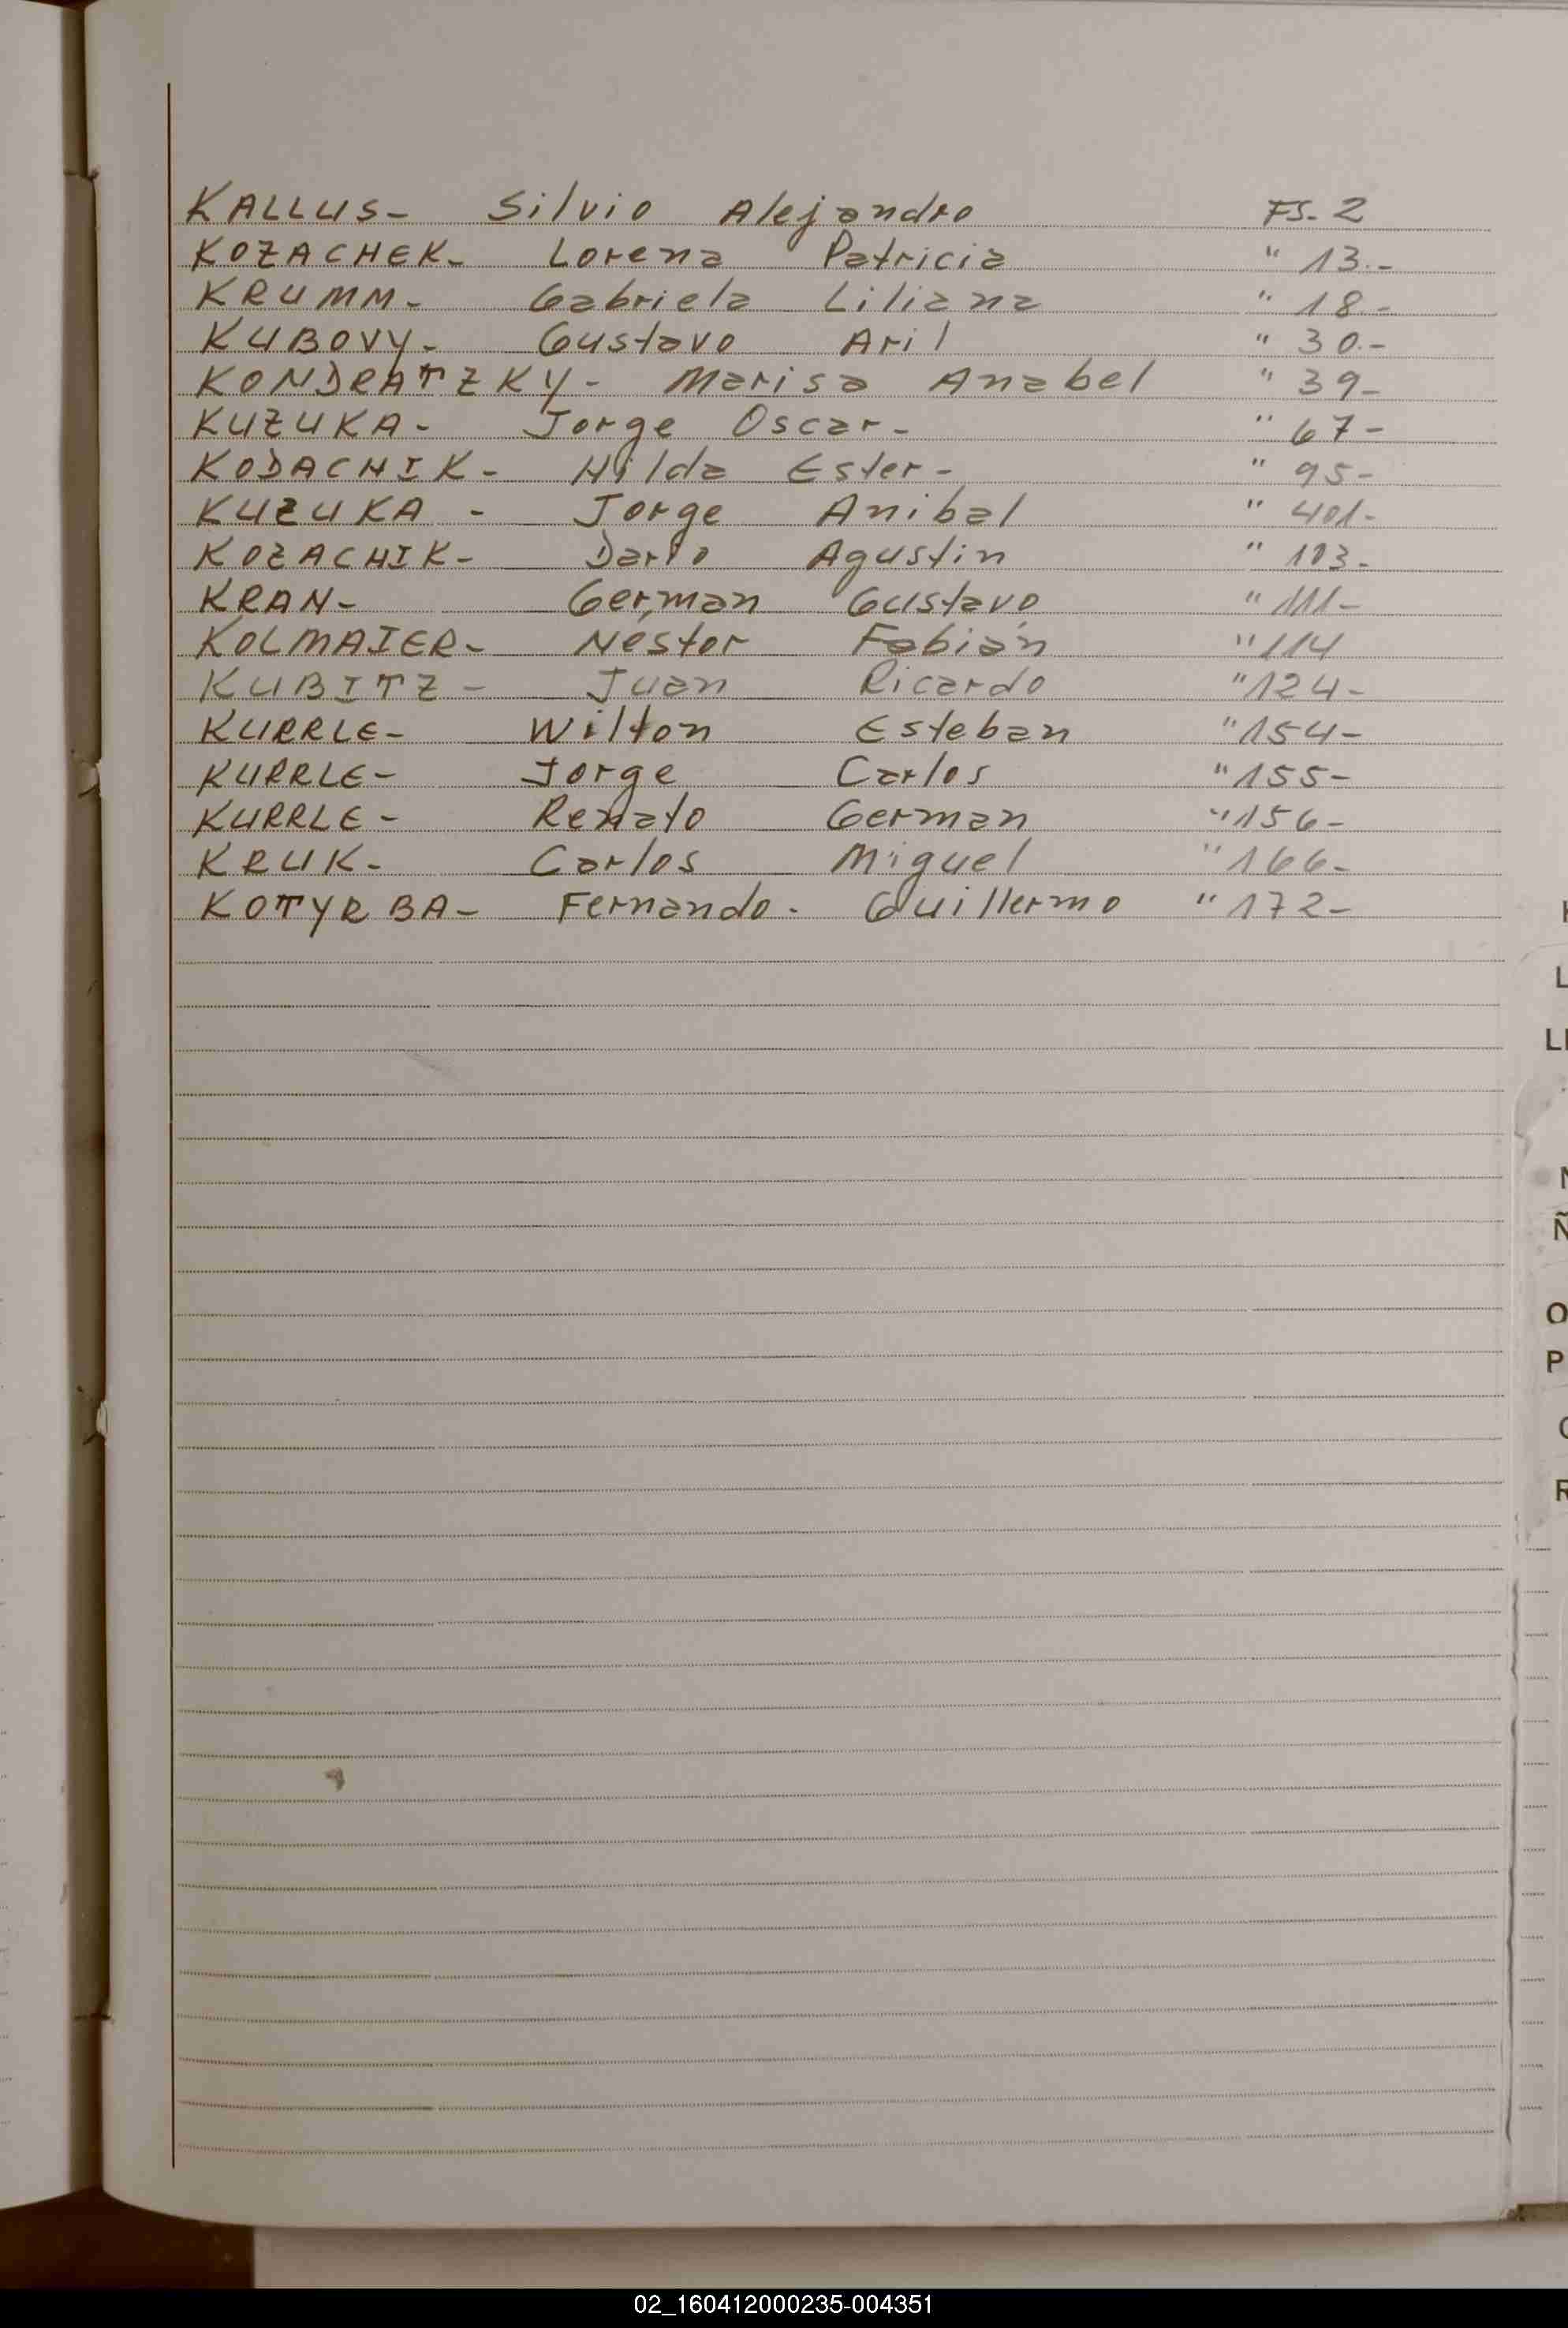 KALLUS- Silvio Alejandro FS. 2
KOZACHEK- Lorena Patricia " 13.-
KRUMM- Gabriela Liliana " 18.-
KUBOVY- Gustavo Aril " 30.-
KONDRATZKY- Marisa Anabel " 39-
KUZUKA- Jorge Oscar- " 67-
KODACHIK- Hilda Ester- " 95-
KUZUKA - Jorge Anibal " 401-
KOZACHIK- Dario Agustin " 103-
KRAN- German Gustavo " 111-
KOLMAIER- Néstor Fabián " 114
KUBITZ- Juan Ricardo " 124-
KURRLE- Wilton Esteban " 154-
KURRLE- Jorge Carlos " 155-
KURRLE- Renato German " 156-
KRUK- Carlos Miguel " 166-
KOTYRBA- Fernando- Guillermo " 172-
L
LL
N
Ñ
O
P
R
02_160412000235-004351